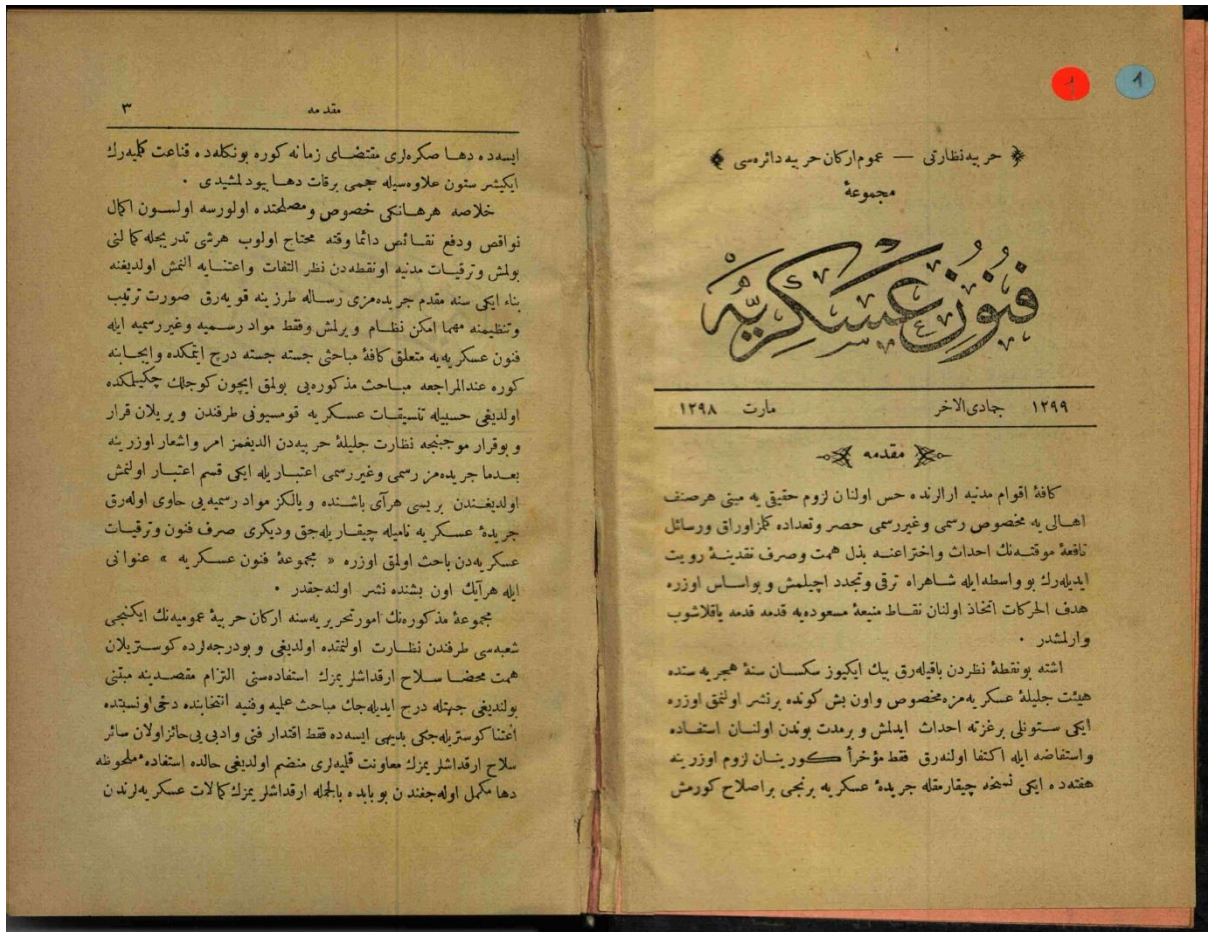 حربيه نظارتی — عموم اركان حربيه دائره‌سی
مجموعهٔ
فنون عسكريه
١٢٩٩ جمادی‌الاخر مارت ١٢٩٨
مقدمه
كافهٔ اقوام مدنيه ارالرنده حس اولنان لزوم حقيقی يه مبنی هرصنف
اهالی يه مخصوص رسمی وغيررسمی حصر وتعداده كلمزاوراق ورسائل
نافعهٔ موقتـه‌نك احداث واختراعنـه بذل همت وصرف نقدينـهٔ رويت
ايديله‌رك بو واسطه‌ايله شـاهراه ترقی وتجدد اچيلمش و بواساس اوزره
هدف الحركات اتخاذ اولنان نقـاط منيعهٔ مسعوده‌يه قدمه قدمه ياقلاشوب
وارلمشدر ٠
اشته بونقطهٔ نظردن باقيله‌رق بيك ايكيوز سكسـان سنهٔ هجريه سنده
هيئت جليلهٔ عسكريه‌مزه‌مخصوص واون بش كونده برنشر اولنمق اوزره
ايكی سـتونلی برغزته احداث ايدلمش و برمدت بوندن اولنـان استفـاده
واستفاضه ايله اكتفا اولنه‌رق فقط مؤخرأ كورينـان لزوم اوزرينه
هفته‌ده ايكی نسخه چيقارمقله جريدهٔ عسكريه برنجی براصلاح كورمش
مقدمه ٣
ايسه‌ده دهـا صكره‌لری مقتضـای زمانه كوره بونكله‌ده قناعت كلميه‌رك
ايكيشر ستون علاوه‌سيله حجمی برقات دهـا بيودلمشيدی ٠
خلاصه هرهـانكی خصوص ومصلحتده اولورسه اولسـون اكمال
نواقص ودفع نقـائص دائما وقته محتاج اولوب هرشی تدريجله كمالنی
بولمش وترقيـات مدنيه اونقطه‌دن نظر التفات واعتنـايه النمش اولديغنه
بناء ايكی سنه مقدم جريده‌مزی رسـاله طرزينه قويه‌رق صورت ترتيب
وتنظيمنه مهما امكن نظـام ويرلمش وفقط مواد رسـميه وغيررسميه ايله
فنون عسكريه‌يه متعلق كافهٔ مباحثی جسته جسته درج ايتمكده وايجـابنه
كوره عندالمراجعه مبـاحث مذكوره‌يی بولمق ايچون كوجلك چكيلمكده
اولديغی حسبيله تنسيقـات عسـكريه قومسيونی طرفندن ويريلان قرار
و بوقرار موجبنجه نظارت جليلهٔ حربيه‌دن الديغمز امر واشعار اوزرينه
بعـدما جريده‌مز رسمی وغيررسمی اعتبـاريله ايكی قسم اعتبـار اولنمش
اولديغنـدن بريسی هرآی باشـنده و يالكز مواد رسميه‌يی حاوی اوله‌رق
جريدهٔ عسكريه ناميله چيقـاريله‌جق وديكری صرف فنون وترقيـات
عسكريه‌دن باحث اولمق اوزره « مجموعهٔ فنون عسـكريه » عنوانی
ايله هرآيك اون بشنده نشر اولنه‌جقدر ٠
مجموعهٔ مذكوره‌نك امورتحريريه‌سنه اركان حربيهٔ عموميه‌نك ايكنجی
شعبه‌سی طرفندن نظـارت اولنمقده اولديغی و بودرجه‌لرده كوسـتريلان
همت محضـا سـلاح ارقداشلريمزك استفاده‌سنی التزام مقصـدينه مبتنی
بولنديغی جهتله درج ايديله‌جك مباحث علميه وفنيه انتخابنده دخی اونسبتده
اعتناكوستريله‌جكی بديهی ايسـه‌ده فقط اقتدار فنی وادبی يی حائزاولان سائر
سلاح ارقداشلريمزك معاونت قلميه‌لری منضم اولديغی حالده استفادهٔ ملحوظه
دها مكمل اوله‌جغندن بوبابده بالجمله ارقداشلريمزك كمالات عسكريه‌لرندن